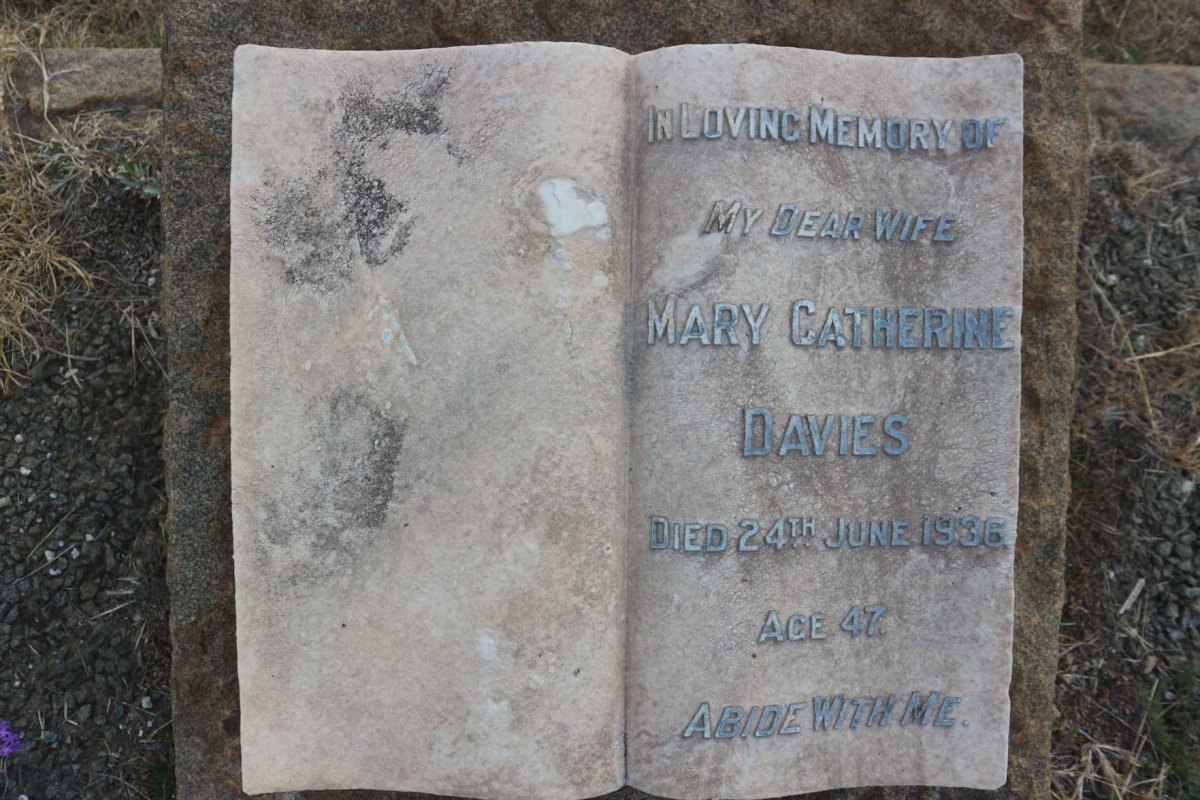 In Loving Memory of
My Dear Wife
Mary Catherine
Davies
Died 24th June 1936
Age 47.
Abide With Me.